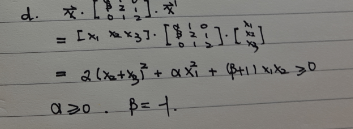 d. \vec{x} \cdot \begin{bmatrix} α & 1 & 0 \\ β & 2 & 1 \\ 0 & 1 & 2 \end{bmatrix} \cdot \vec{x}
= [x₁ x₂ x₃] \cdot \begin{bmatrix} α & 1 & 0 \\ β & 2 & 1 \\ 0 & 1 & 2 \end{bmatrix} \cdot \begin{bmatrix} x₁ \\ x₂ \\ x₃ \end{bmatrix}
= 2(x₂+x₃)² + αx₁² + (β+1)x₁x₂ ≥0
α≥0. β=-1.